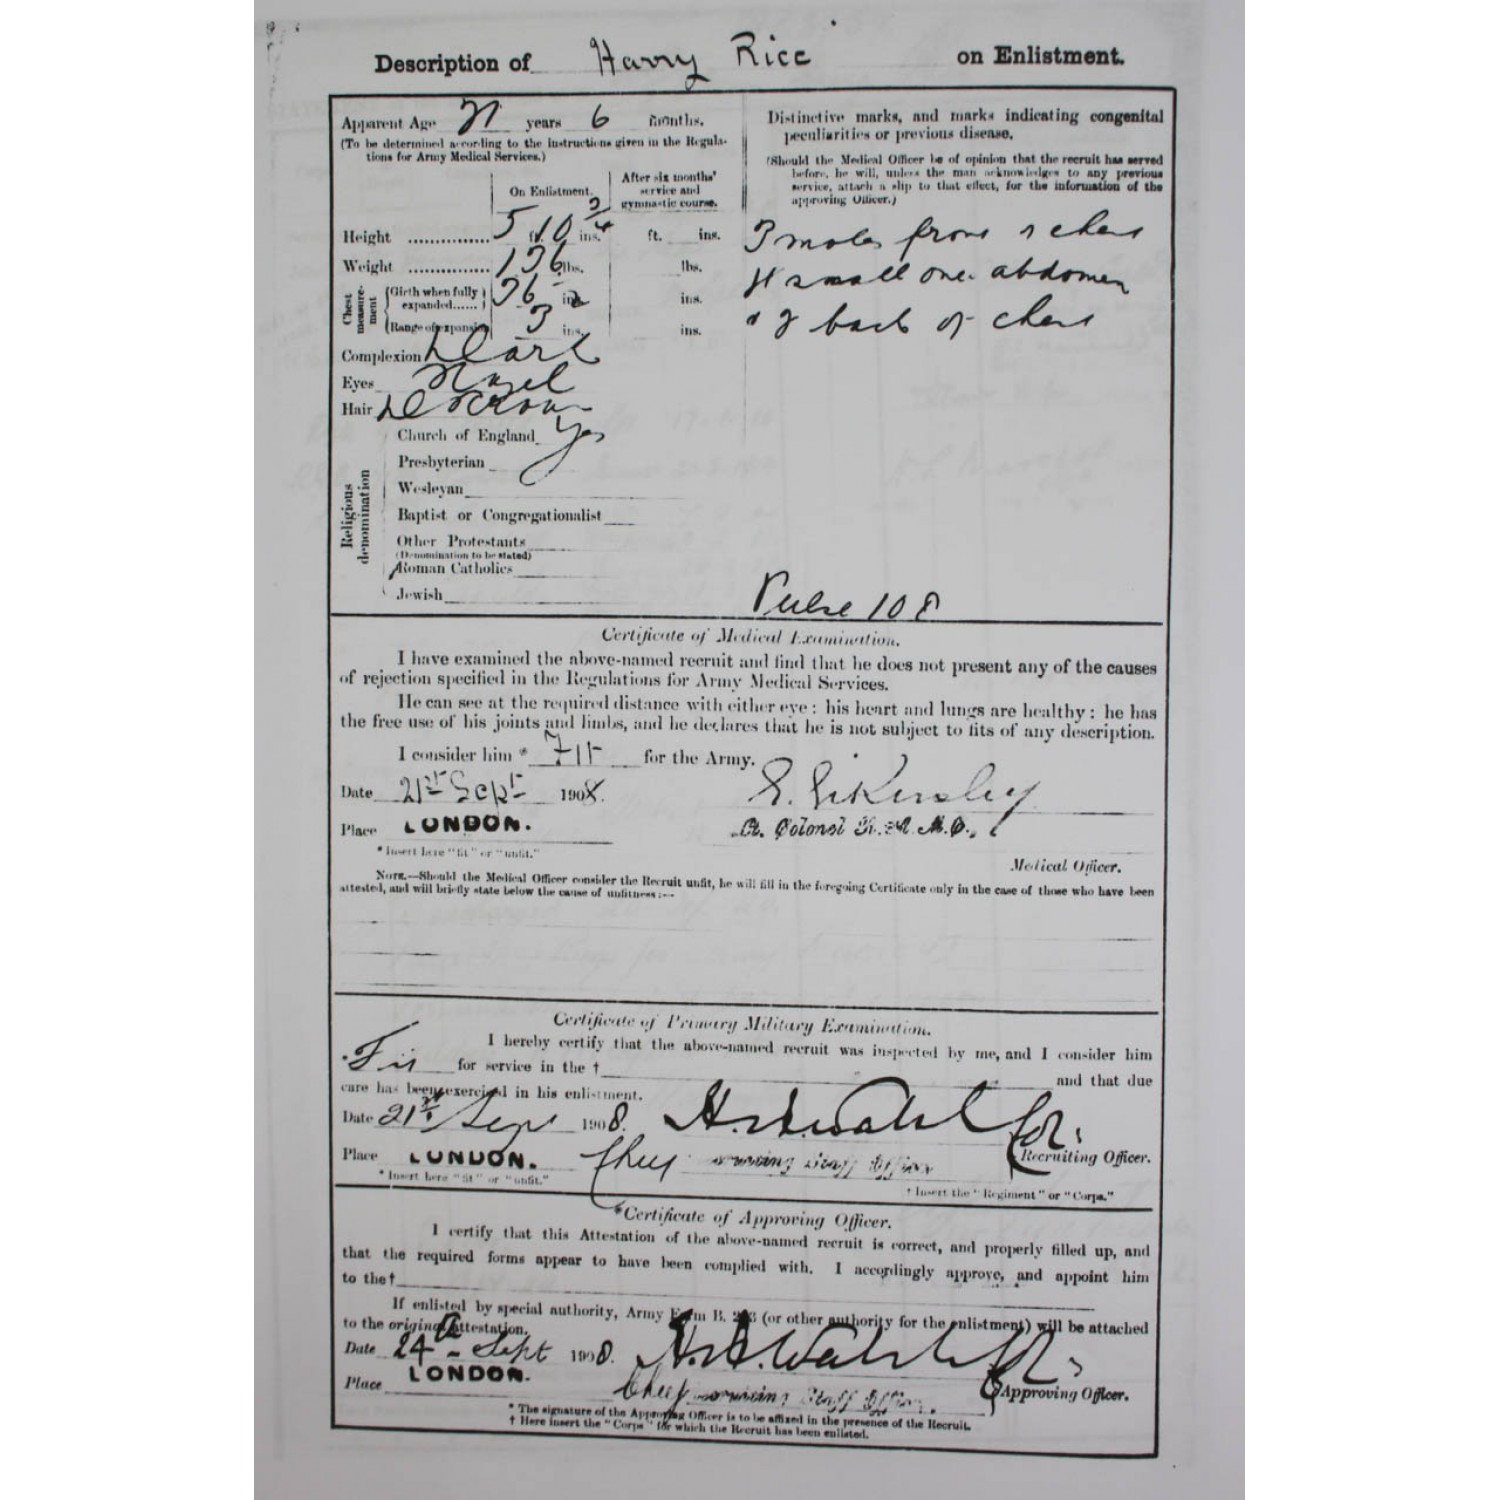 Description of Harry Rice on Enlistment.
Apparent Age 21 years 6 months.
(To be determined according to the instructions given in the Regulations for Army Medical Services.)
On Enlistment.
After six months' service and gymnastic course.
Height 5 ft. 10 3/4 ins. ft. ins.
Weight 136 lbs. lbs.
Chest measurement
Girth when fully expanded 36 ins. ins.
Range of expansion 3 ins. ins.
Complexion Dark
Eyes Hazel
Hair D Brown
Religious denomination
Church of England Yes
Presbyterian
Wesleyan
Baptist or Congregationalist
Other Protestants
(Denomination to be stated)
Roman Catholics
Jewish
Distinctive marks, and marks indicating congenital
peculiarities or previous disease.
(Should the Medical Officer be of opinion that the recruit has served
before, he will, unless the man acknowledges to any previous
service, attach a slip to that effect, for the information of the
approving Officer.)
3 moles front chest
4 small one abdomen
2 back of chest
Pulse 108
Certificate of Medical Examination.
I have examined the above-named recruit and find that he does not present any of the causes
of rejection specified in the Regulations for Army Medical Services.
He can see at the required distance with either eye: his heart and lungs are healthy: he has
the free use of his joints and limbs, and he declares that he is not subject to fits of any description.
I consider him * Fit for the Army.
Date 21st Sept 1908.
Place LONDON.
Colonel R.A.M.C.
* Insert here "fit" or "unfit."
Medical Officer.
NOTE.—Should the Medical Officer consider the Recruit unfit, he will fill in the foregoing Certificate only in the case of those who have been
attested, and will briefly state below the cause of unfitness:—
Certificate of Primary Military Examination.
I hereby certify that the above-named recruit was inspected by me, and I consider him
* Fit for service in the † and that due
care has been exercised in his enlistment.
Date 21st Sept 1908.
Place LONDON.
Chief Staff Officer
Recruiting Officer.
* Insert here "fit" or "unfit."
† Insert the "Regiment" or "Corps."
*Certificate of Approving Officer.
I certify that this Attestation of the above-named recruit is correct, and properly filled up, and
that the required forms appear to have been complied with. I accordingly approve, and appoint him
to the†
If enlisted by special authority, Army Form B. 203 (or other authority for the enlistment) will be attached
to the original attestation.
Date 24th Sept 1908.
Place LONDON.
Chief Staff Officer.
Approving Officer.
* The signature of the Approving Officer is to be affixed in the presence of the Recruit.
† Here insert the "Corps" for which the Recruit has been enlisted.